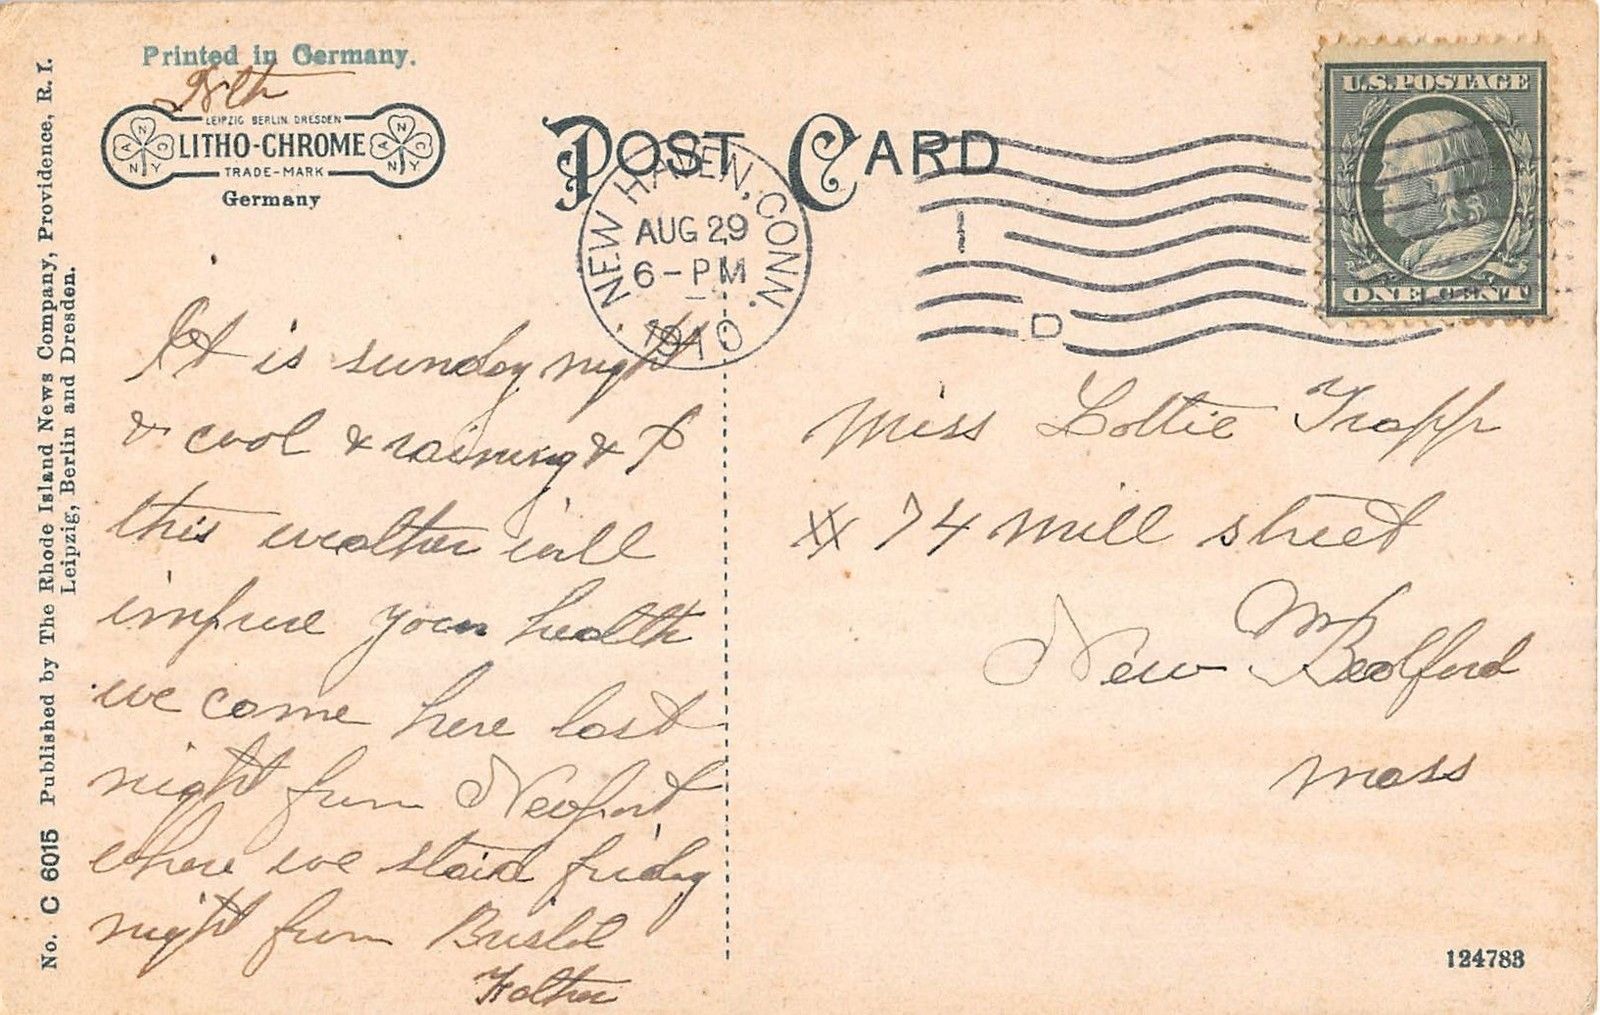 Printed in Germany.
LEIPZIG BERLIN DRESDEN
LITHO-CHROME
TRADE-MARK
Germany
POST CARD
NEW HAVEN, CONN.
AUG 29
6-PM
1910
1
D
U.S. POSTAGE
ONE CENT
It is sunday night
& cool & raining &
this weather will
your health
we come here last
night from Newport
where we staid friday
night from Bristol
Father
Miss Lottie Trapp
74 Mill street
New Bedford
Mass
124783
No. C 6015 Published by The Rhode Island News Company, Providence, R. I.
Leipzig, Berlin and Dresden.